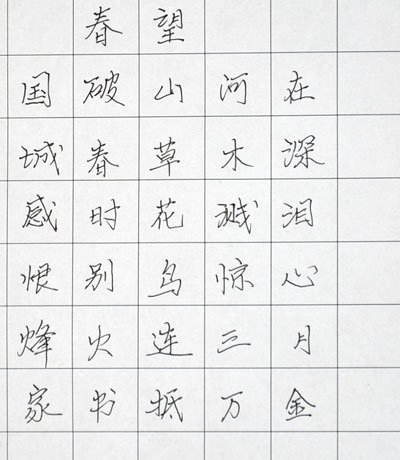 春望
国破山河在
城春草木深
感时花溅泪
恨别鸟惊心
烽火连三月
家书抵万金